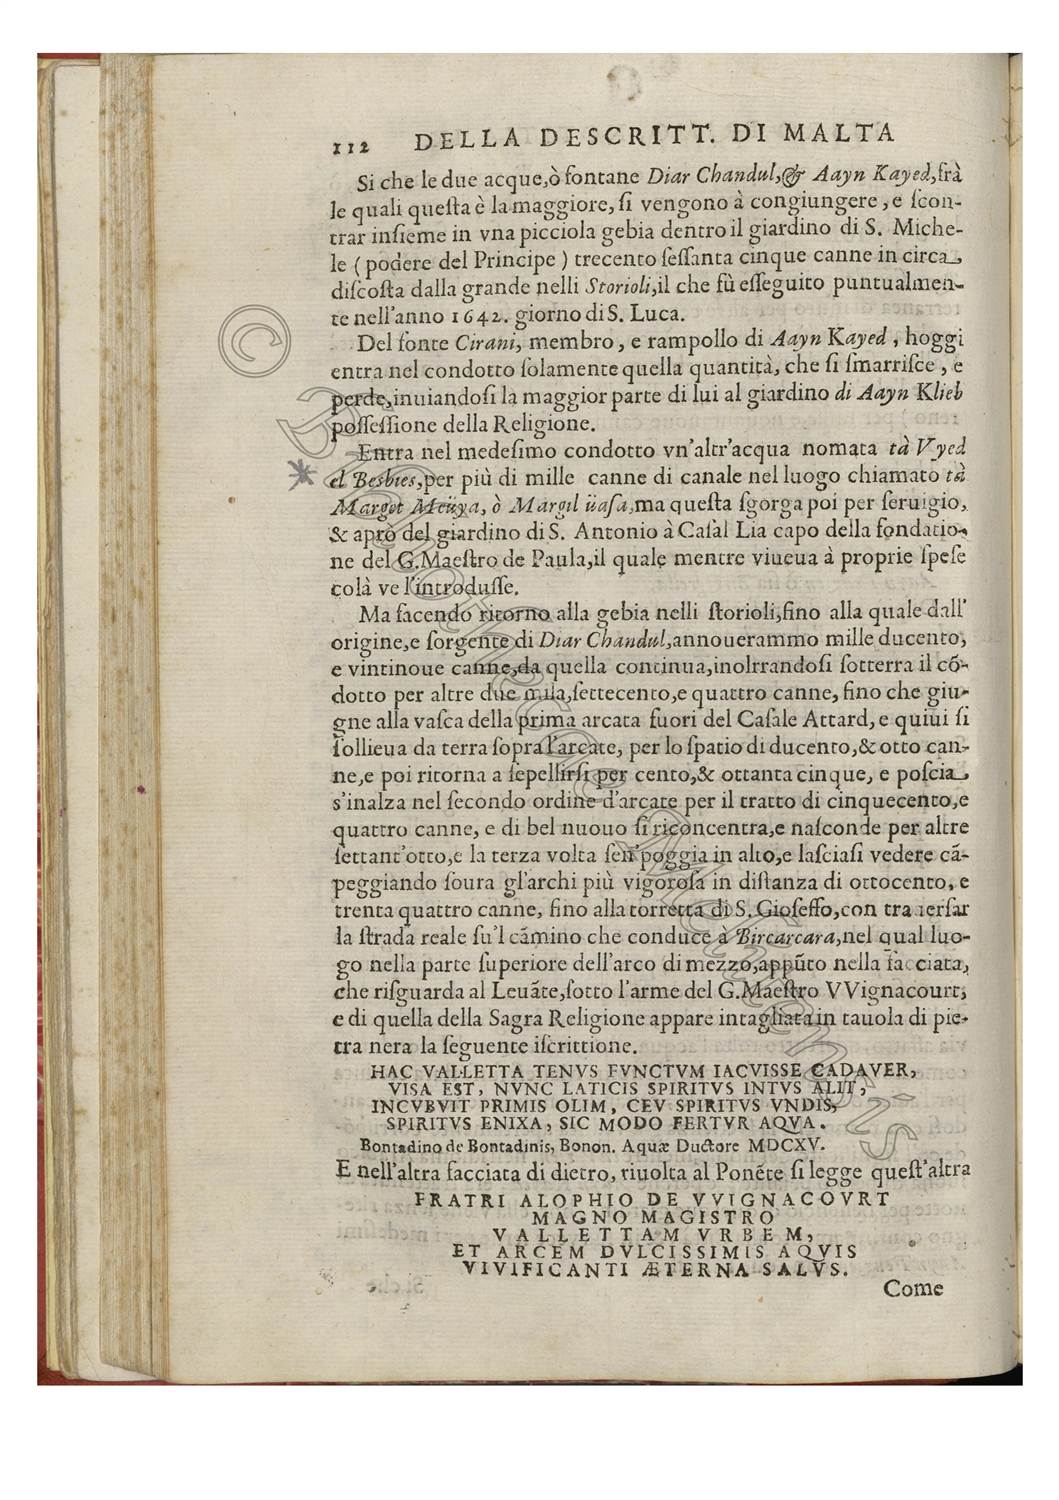 112 DELLA DESCRITT. DI MALTA
Si che le due acque,ò fontane Diar Chandul,& Aayn Kayed,frà
le quali queſta è la maggiore, ſi vengono à congiungere, e ſcon-
trar inſieme in vna picciola gebia dentro il giardino di S. Miche-
le ( podere del Principe ) trecento ſeſſanta cinque canne in circa,
diſcoſta dalla grande nelli Storioli,il che fù eſſeguito puntualmen-
te nell'anno 1642. giorno di S. Luca.
Del fonte Cirani, membro, e rampollo di Aayn Kayed, hoggi
entra nel condotto ſolamente quella quantità, che ſi ſmarriſce, e
perde,inuiandoſi la maggior parte di lui al giardino di Aayn Klieb
poſſeſſione della Religione.
Entra nel medeſimo condotto vn'altr'acqua nomata tà Vyed
el Besbies,per più di mille canne di canale nel luogo chiamato tà
Marget Meüya, ò Margil üaſa,ma queſta ſgorga poi per ſeruigio,
& aprò del giardino di S. Antonio à Caſal Lia capo della fondatio-
ne del G.Maeſtro de Paula,il quale mentre viueua à proprie ſpeſe
colà ve l'introduſſe.
Ma facendo ritorno alla gebia nelli ſtorioli,fino alla quale dall'
origine,e ſorgente di Diar Chandul,annouerammo mille ducento,
e vintinoue canne,da quella continua,inoltrandoſi ſotterra il cõ-
dotto per altre due mila,ſettecento,e quattro canne, fino che giu-
gne alla vaſca della prima arcata fuori del Caſale Attard, e quiui ſi
ſollieua da terra ſopra l'arcate, per lo ſpatio di ducento,& otto can-
ne,e poi ritorna a ſepellirſi per cento,& ottanta cinque, e poſcia
s'inalza nel ſecondo ordine d'arcate per il tratto di cinquecento,e
quattro canne, e di bel nuouo ſi riconcentra,e naſconde per altre
ſettant'otto,e la terza volta ſen'poggia in alto,e laſciaſi vedere cã-
peggiando ſoura gl'archi più vigoroſa in diſtanza di ottocento, e
trenta quattro canne, fino alla torretta di S. Gioſeffo,con trauerſar
la ſtrada reale ſu'l cãmino che conduce à Bircarcara,nel qual luo-
go nella parte ſuperiore dell'arco di mezzo,appũto nella facciata,
che riſguarda al Leuãte,ſotto l'arme del G.Maeſtro VVignacourt,
e di quella della Sagra Religione appare intagliata in tauola di pie-
tra nera la ſeguente iſcrittione.
HAC VALLETTA TENVS FVNCTVM IACVISSE CADAVER,
VISA EST, NVNC LATICIS SPIRITVS INTVS ALIT,
INCVBVIT PRIMIS OLIM, CEV SPIRITVS VNDIS,
SPIRITVS ENIXA, SIC MODO FERTVR AQVA.
Bontadino de Bontadinis, Bonon. Aquæ Ductore MDCXV.
E nell'altra facciata di dietro, riuolta al Ponẽte ſi legge queſt'altra
FRATRI ALOPHIO DE VVIGNACOVRT
MAGNO MAGISTRO
VALLETTAM VRBEM,
ET ARCEM DVLCISSIMIS AQVIS
VIVIFICANTI ÆTERNA SALVS.
Come